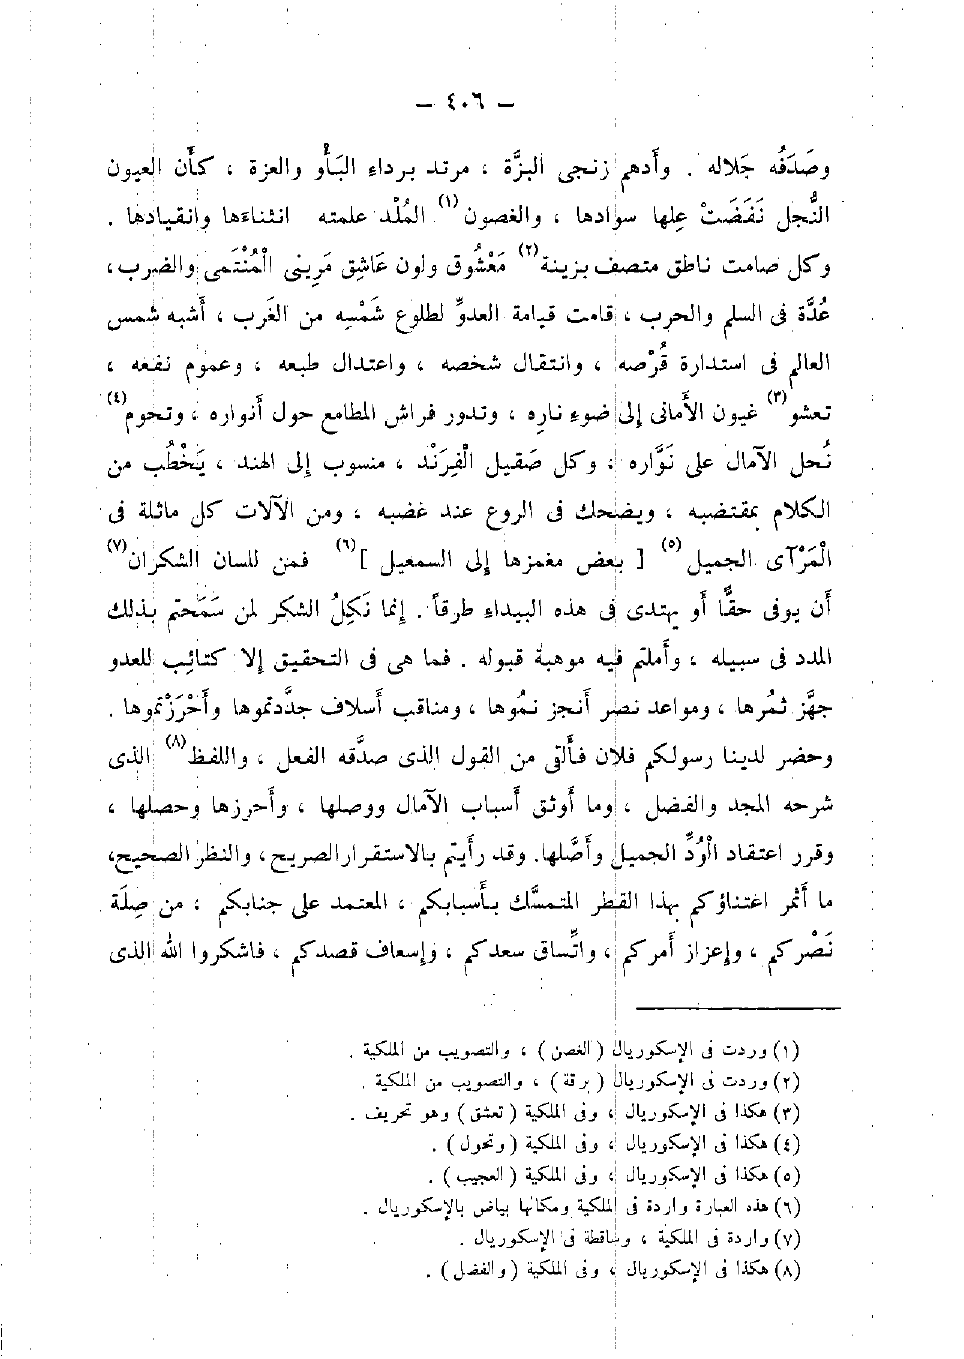 — ٤٠٦ —
وصَدَفُه جَلاله . وأدهم زنجى البزَّة ، مرتد برداء البَأْو والعزة ، كأن العيون
النُّجل نَفَضَتْ علها سوادها ، والغصون(١) المُلْد علمته انثناءها وانقيادها .
وكل صامت ناطق متصف بزينة(٢) مَعْشُوق ولون عَاشِق مَرِينى الْمُنْتَمى والضرب،
عُدَّة فى السلم والحرب ، قامت قيامة العدوِّ لطلوع شَمْسِه من الغَرب ، أشبه شمس
العالم فى استدارة قُرْصه ، وانتقال شخصه ، واعتدال طبعه ، وعموم نفعه ،
تعشو(٣) عيون الأمانى إلى ضوءِ نارِه ، وتدور فراش المطامع حول أنواره ، وتحوم(٤)
نُحل الآمال على نَوَّاره ، وكل صَقيل الْفِرَنْد ، منسوب إلى الهند ، يَخْطُب من
الكلام بمقتضبه ، ويضحك فى الروع عند غضبه ، ومن الآلات كل ماثلة فى
الْمَرْآى الجميل(٥) [ بعض مغمزها إلى السمعيل ](٦) فمن للسان الشكران(٧)
أن يوفى حقًّا أو يهتدى فى هذه البيداءِ طرقاً . إنما نَكِلُ الشكر لمن سَمَحتم بذلك
المدد فى سبيله ، وأملتم فيه موهبة قبوله . فما هى فى التحقيق إلا كتائِب للعدو
جهَّز ثمُرها ، ومواعد نصر أنجز نمُوها ، ومناقب أسلاف جدَّدتموها وأَحْرَزْتموها .
وحضر لدينا رسولكم فلان فألقى من القول الذى صدَّقه الفعل ، واللفظ(٨) الذى
شرحه المجد والفضل ، وما أوثق أسباب الآمال ووصلها ، وأحرزها وحصلها ،
وقرر اعتقاد الْوُدِّ الجميل وأصَّلها. وقد رأيتم بالاستقرار الصريح، والنظر الصحيح،
ما أثمر اعتناؤكم بهذا القطر المتمسَّك بأسبابكم ، المعتمد على جنابكم ، من صِلَة
نَصْركم ، وإعزاز أمركم ، واتِّساق سعدكم ، وإسعاف قصدكم ، فاشكروا الله الذى
(١) وردت فى الإسكوريال ( الغصن ) ، والتصويب من الملكية .
(٢) وردت فى الإسكوريال ( برقة ) ، والتصويب من الملكية .
(٣) هكذا فى الإسكوريال ، وفى الملكية ( تعشق ) وهو تحريف .
(٤) هكذا فى الإسكوريال ، وفى الملكية ( وتحول ) .
(٥) هكذا فى الإسكوريال ، وفى الملكية ( العجيب ) .
(٦) هذه العبارة واردة فى الملكية ومكانها بياض بالإسكوريال .
(٧) واردة فى الملكية ، وساقطة فى الإسكوريال .
(٨) هكذا فى الإسكوريال ، وفى الملكية ( والفضل ) .